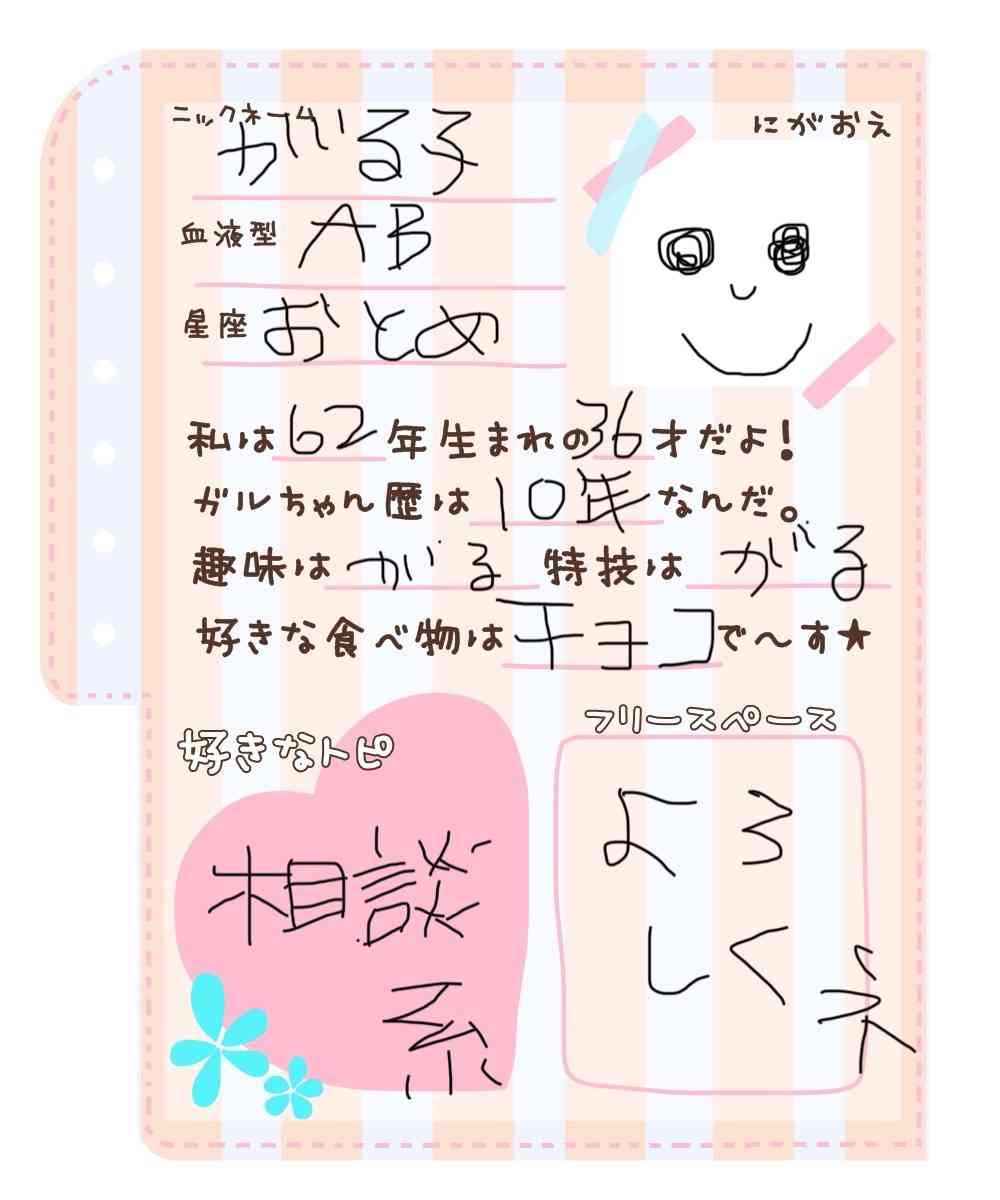 ニックネーム がる子
にがおえ
血液型 AB
星座 おとめ
私は62年生まれの36才だよ!
ガルちゃん歴は10年なんだ。
趣味はがる 特技はがる
好きな食べ物はチョコで〜す★
好きなトピ
相談
系
フリースペース
よろ
しくネ